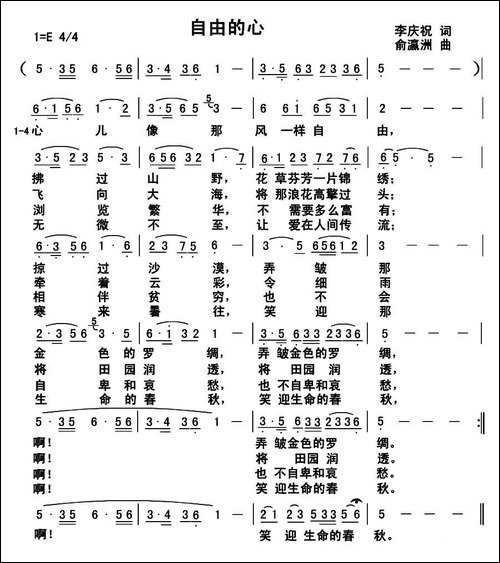 自由的心
1=E 4/4
李庆祝 词
俞瀛洲 曲
( 5·35 6·56 | 3·436 1 - | 3·563 2336 | 5 - - - )
6·156 1·2 | 3·565 3 5 - | 6 61 6531 | 2 - - - |
1-4心 儿 像 那 风 一样 自 由,
3·523 5·3 | 656 32 1·7 | 6123 7 76 | 65·5 - |
拂 过 山 野, 花 草芬芳一片锦 绣;
飞 向 大 海, 将 那浪花高擎过 头;
浏 览 繁 华, 不 需要多么富 有;
无 微 不 至, 让 爱在人间传 流;
6·3 5 3561 | 2375 6 - | 3·5 65612 3 |
掠 过 沙 漠, 弄 皱 那
牵 着 云 彩, 令 细 雨
相 伴 贫 穷, 也 不 会
寒 来 暑 往, 笑 迎 那
2·356 5 | 6·123 1 - | 3·5633 2336 | 5 - - - |
金 色 的 罗 绸, 弄 皱金色的罗 绸,
将 田 园 润 透, 将 田园 润 透,
自 卑 和 哀 愁, 也 不自卑和哀 愁,
生 命 的 春 秋, 笑 迎生命的春 秋,
5·35 6·56 | 3·436 1 - | 3·5 633 2336 | 5 - - - :‖
啊! 弄 皱金色的罗 绸。
啊! 将 田园 润 透。
啊! 也 不自卑和哀 愁。
啊! 笑 迎生命的春 秋。
5·35 6·56 | 3·436 1 - | 21 23 5356 | 1 - - - ‖
啊! 笑 迎 生命的春 秋。